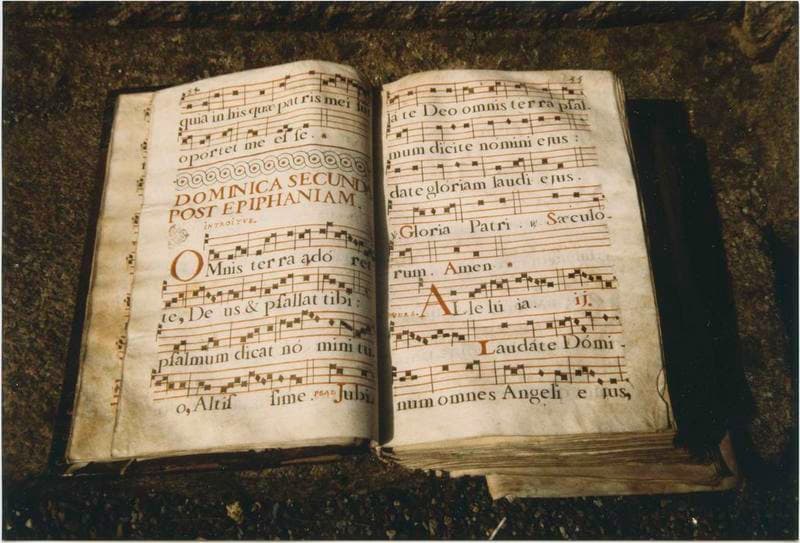 quia in his quæ patris mei
oportet me es se.
DOMINICA SECUND
POST EPIPHANIAM.
INTROITVS.
OMnis terra adó ret
te, De us & psallat tibi:
psalmum dicat nó mini tu
o, Altis sime. PSAL. Jubi
la te Deo omnis terra psal-
mum dicite nomini ejus:
date gloriam laudi ejus.
Gloria Patri. Sæculo-
rum. Amen.
ALle lú ia. ij.
Laudáte Dómi-
num omnes Angeli e jus,